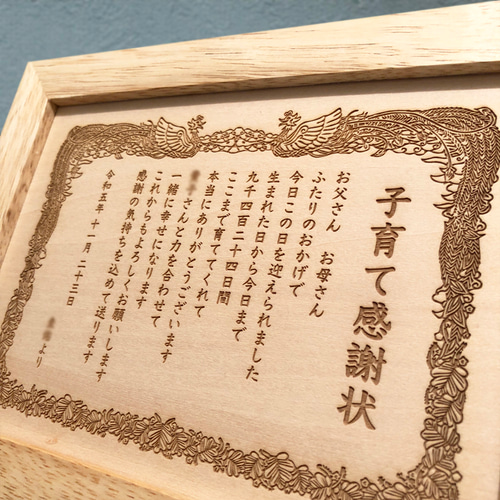 子育て感謝状
お父さん　お母さん
ふたりのおかげで
今日この日を迎えられました
生まれた日から今日まで
九千四百二十四日間
ここまで育ててくれて
本当にありがとうございます
子さんと力を合わせて
一緒に幸せになります
これからもよろしくお願いします
感謝の気持ちを込めて送ります
令和五年十一月二十三日
より